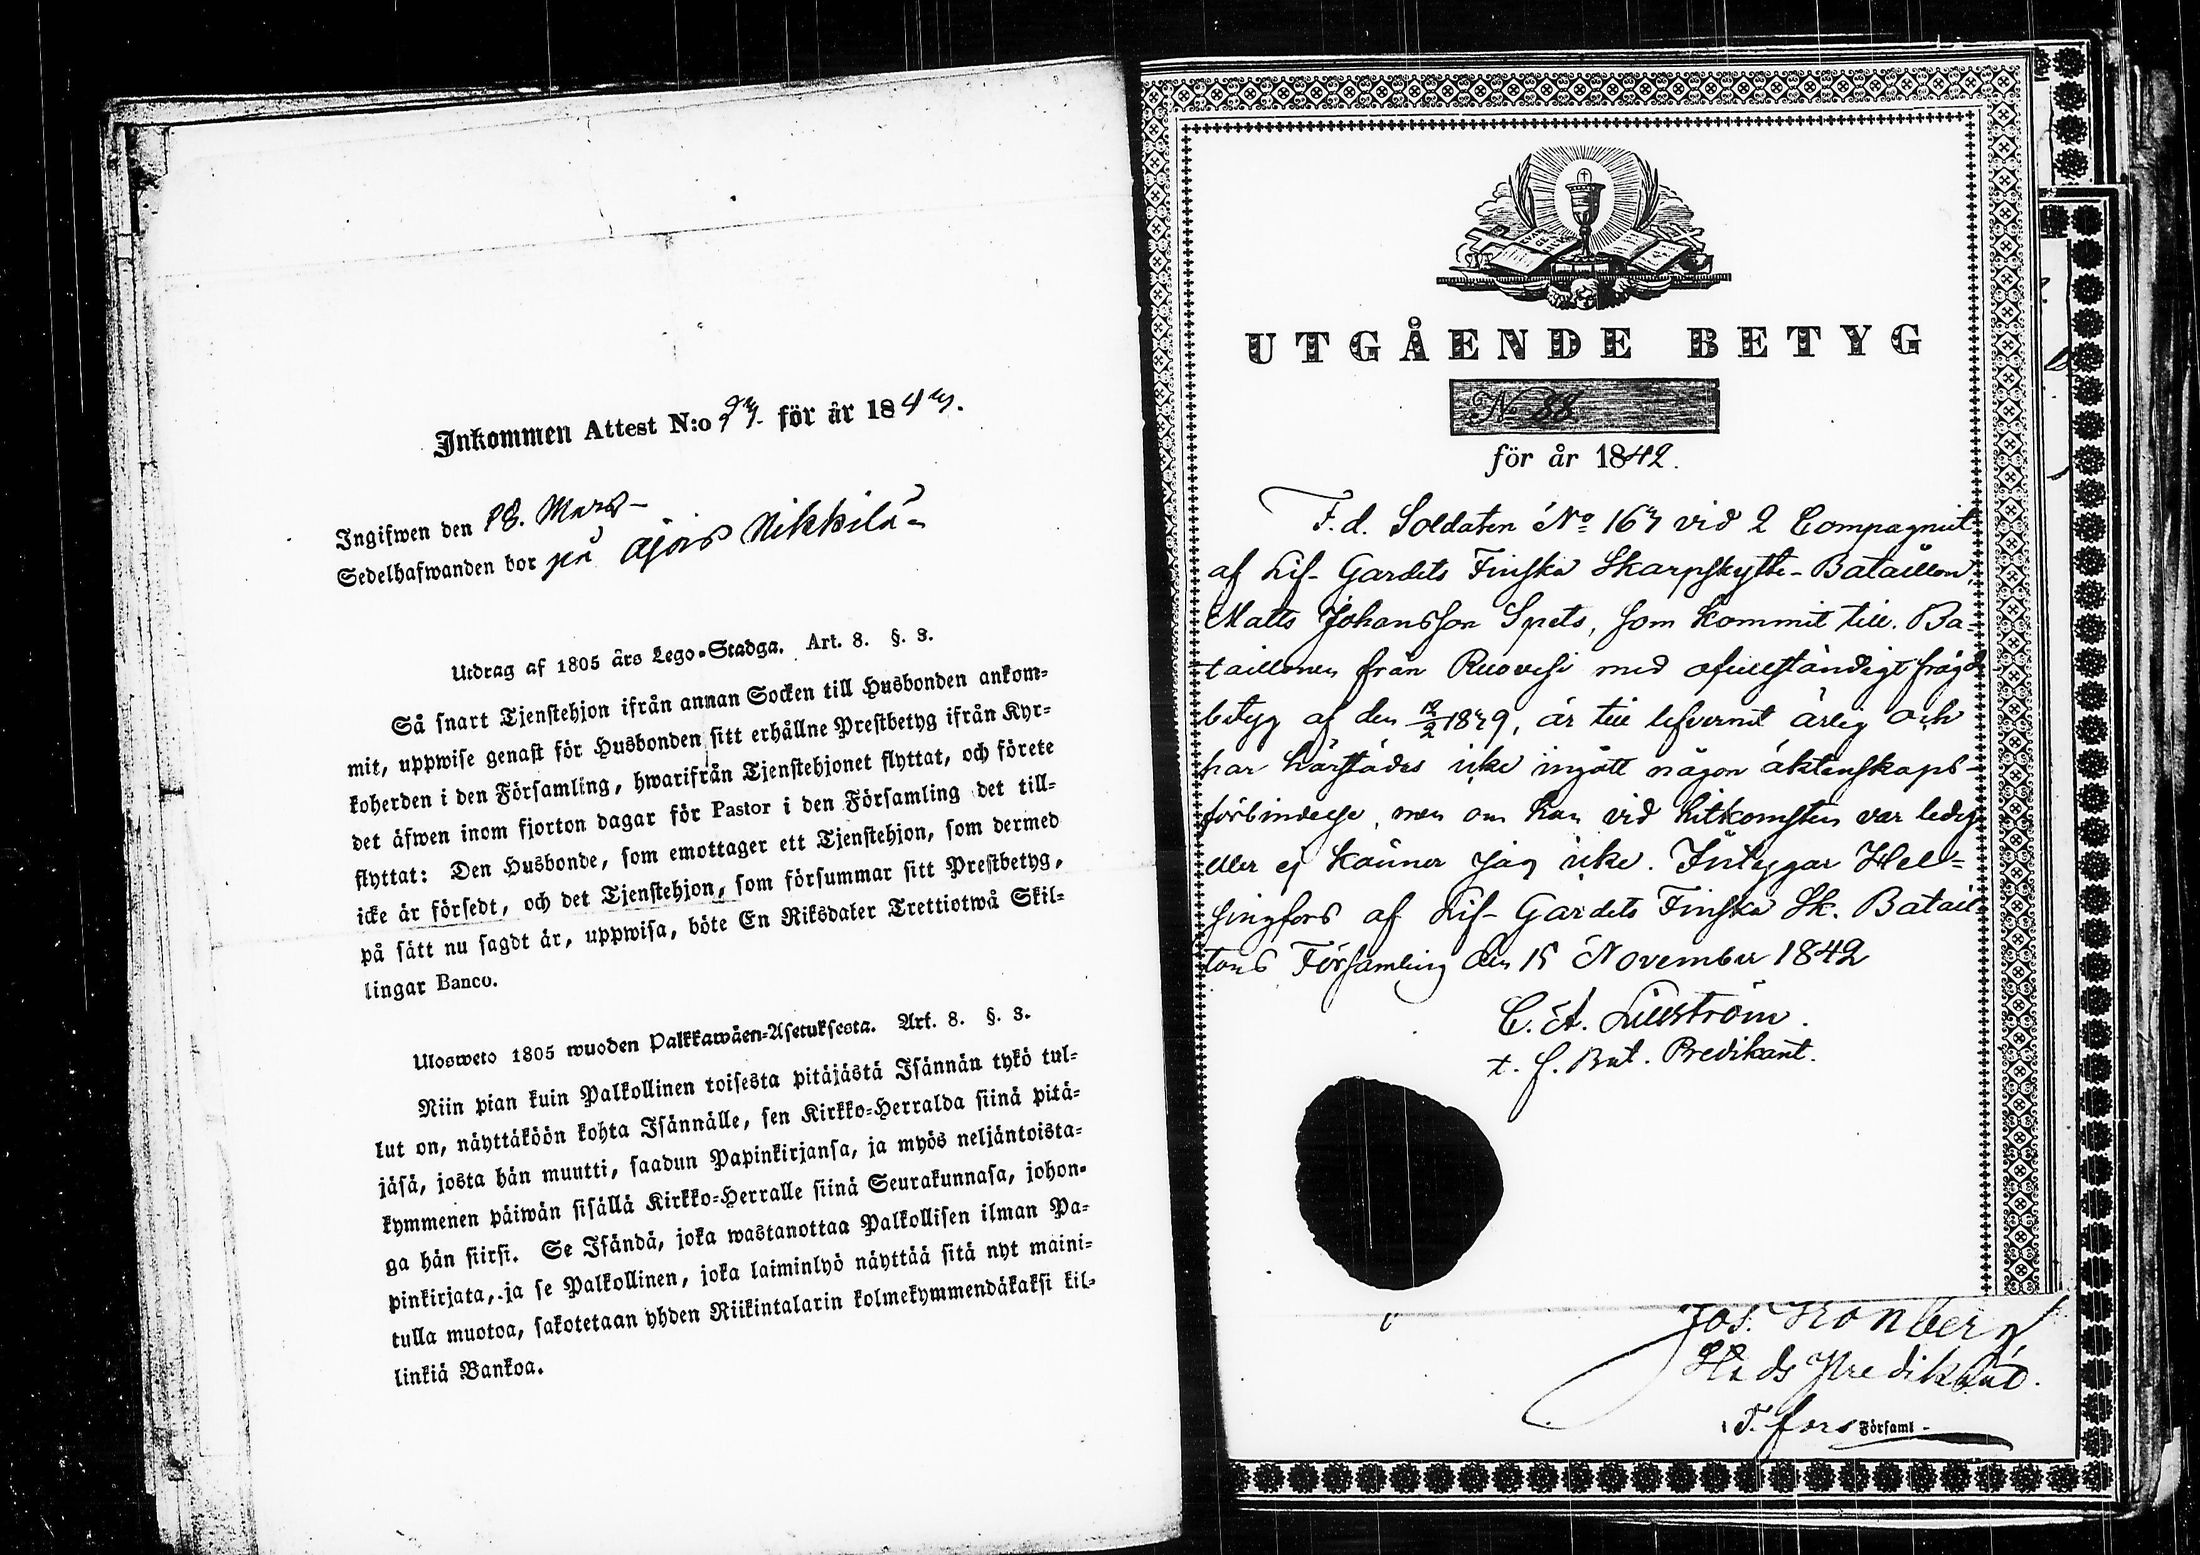 Inkommen Attest N:o 93. för år 1843.
Ingifwen den 18. Mars
Sedelhafwanden bor på Äjois Nikkilä
Utdrag af 1805 års Lego-Stadga. Art. 8. §. 3.
Så snart Tjenstehjon ifrån annan Socken till Husbonden ankom-
mit, uppwise genast för Husbonden sitt erhållne Prestbetyg ifrån Kyr-
koherden i den Församling, hwarifrån Tjenstehjonet flyttat, och förete
det äfwen inom fjorton dagar för Pastor i den Församling det till-
flyttat: Den Husbonde, som emottager ett Tjenstehjon, som dermed
icke är försedt, och det Tjenstehjon, som försummar sitt Prestbetyg,
på sätt nu sagdt är, uppwisa, böte En Riksdaler Trettiotwå Skil-
lingar Banco.
Ulosweto 1805 wuoden Palkkawäen-Asetuksesta. Art. 8. §. 3.
Niin pian kuin Palkollinen toisesta pitäjästä Isännän tykö tul-
lut on, näyttäköön kohta Isännälle, sen Kirkko-Herralda siinä pitä-
jäsä, josta hän muutti, saadun Papinkirjansa, ja myös neljäntoista-
kymmenen päiwän sisällä Kirkko-Herralle siinä Seurakunnasa, johon-
ga hän siirsi. Se Isändä, joka wastanottaa Palkollisen ilman Pa-
pinkirjata, ja se Palkollinen, joka laiminlyö näyttää sitä nyt maini-
tulla muotoa, sakotetaan yhden Riikintalarin kolmekymmendäkaksi kil-
linkiä Bankoa.
UTGÅENDE BETYG
N 88
för år 1842.
F. d. Soldaten No 163 vid 2 Compagniet
af Lif-Gardets Finska Skarpskytte-Bataillon,
Matts Johansson Spets, som kommit till Ba-
taillonen från Ruovesi med ofullständigt frägd
betyg af den 12/2 1839, är till lefvernet ärlig och
har härstädes icke ingått någon äktenskaps-
förbindelse, men om han vid hitkomsten var ledig
eller ej känner jag icke. Intygar Hel-
singfors af Lif-Gardets Finska Sk. Batail-
lons Församling den 15 November 1842
C. A. Lillström.
t. f. Bat. Predikant.
Jos. Kronberg
Stads Predikant.
T. fors Församl